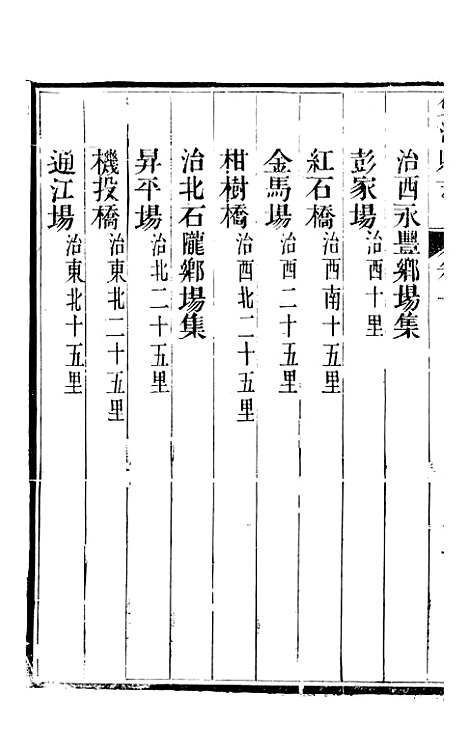 治西永豐鄉場集
彭家場 治西十里
紅石橋 治西南十五里
金馬場 治西二十五里
柑樹橋 治西北二十五里
治北石隴鄉場集
昇平場 治北二十五里
機投橋 治東北二十五里
通江場 治東北十五里